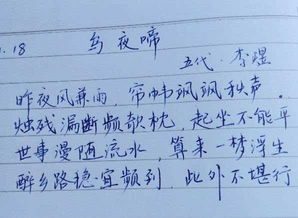 1.18 乌夜啼
五代·李煜
昨夜风兼雨，帘帏飒飒秋声.
烛残漏断频欹枕，起坐不能平
世事漫随流水，算来一梦浮生
醉乡路稳宜频到，此外不堪行